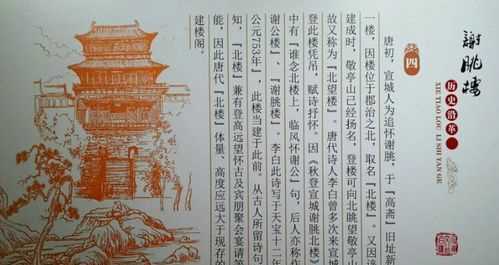 謝朓樓
历史沿革
XIE TIAO LOU LI SHI YAN GE
四
唐初，宣城人为追怀谢朓，于『高斋』旧址新
一楼，因楼位于郡治之北，取名『北楼』。又因该
建成时，敬亭山已经扬名，登楼可向北眺望敬亭山
故又称为『北望楼』。唐代诗人李白曾多次来宣城
登此楼凭吊，赋诗抒怀。因《秋登宣城谢朓北楼》
中有『谁念北楼上，临风怀谢公』句，后人亦称作
谢公楼』、『谢朓楼』。李白此诗写于天宝十二
公元753年』，此楼当建于此前。从古人所留诗句
知，『北楼』兼有登高远望怀古及宾朋聚会宴请等
能，因此唐代『北楼』体量、高度应远大于现存的
建楼阁。